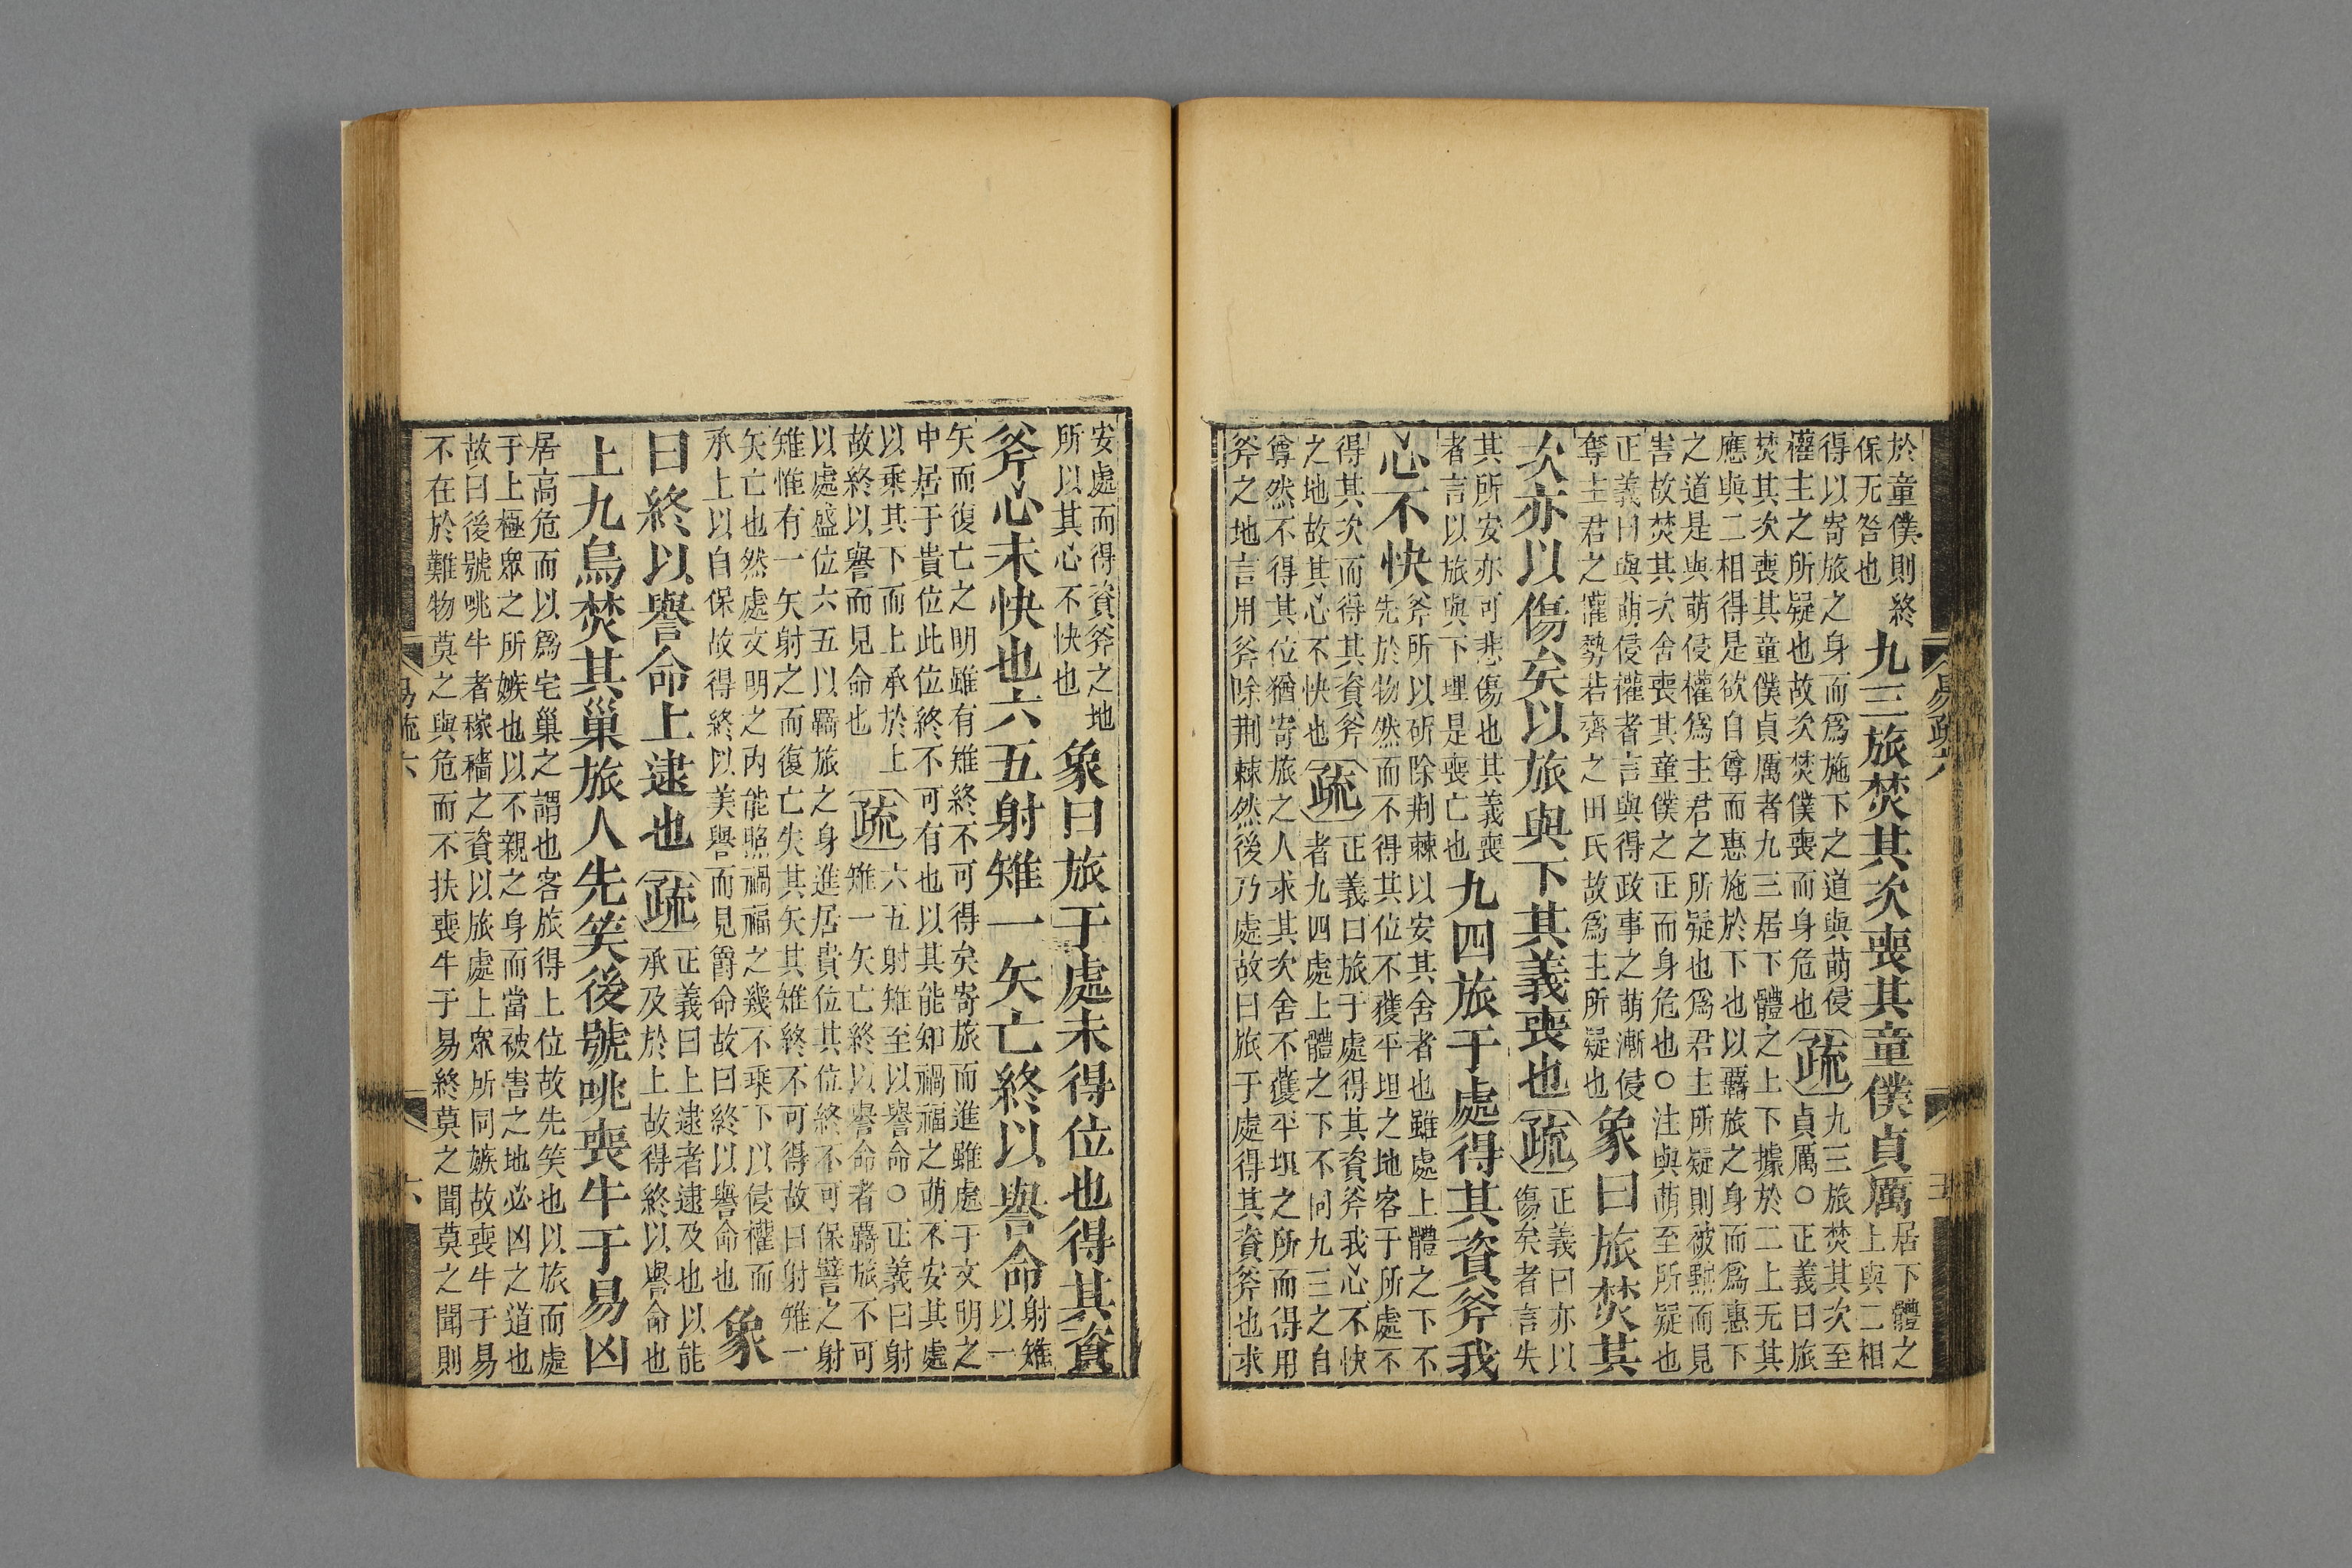 於童僕則終
保无咎也
九三旅焚其次喪其童僕貞厲
居下體之
上與二相
得以寄旅之身而爲施下之道與萌侵
權主之所疑也故次焚僕喪而身危也
疏
九三旅焚其次至
貞厲○正義曰旅
焚其次喪其童僕貞厲者九三居下體之上下據於二上无其
應與二相得是欲自尊而惠施於下也以羇旅之身而爲惠下
之道是與萌侵權爲主君之所疑也爲君主所疑則被黜而見
害故焚其次舍喪其童僕之正而身危也○注與萌至所疑也
正義曰與萌侵權者言與得政事之萌漸侵
奪主君之權勢若齊之田氏故爲主所疑也
象曰旅焚其
次亦以傷矣以旅與下其義喪也
疏
正義曰亦以
傷矣者言失
其所安亦可悲傷也其義喪
者言以旅與下理是喪亡也
九四旅于處得其資斧我
心不快
斧所以斫除荆棘以安其舍者也雖處上體之下不
先於物然而不得其位不獲平坦之地客于所處不
得其次而得其資斧
之地故其心不快也
疏
正義曰旅于處得其資斧我心不快
者九四處上體之下不同九三之自
尊然不得其位猶寄旅之人求其次舍不獲平坦之所而得用
斧之地言用斧除荆棘然後乃處故曰旅于處得其資斧也求
易疏六
安處而得資斧之地
所以其心不快也
象曰旅于處未得位也得其資
斧心未快也六五射雉一矢亡終以譽命
射雉
以一
矢而復亡之明雖有雉終不可得矣寄旅而進雖處于文明之
中居于貴位此位終不可有也以其能知禍福之萌不安其處
以乘其下而上承於上
故終以譽而見命也
疏
六五射雉至以譽命○正義曰射
雉一矢亡終以譽命者羇旅不可
以處盛位六五以羇旅之身進居貴位其位終不可保譬之射
雉惟有一矢射之而復亡失其矢其雉終不可得故曰射雉一
矢亡也然處文明之內能照禍福之幾不乘下以侵權而
承上以自保故得終以美譽而見爵命故曰終以譽命也
象
曰終以譽命上逮也
疏
正義曰上逮者逮及也以能
承及於上故得終以譽命也
上九鳥焚其巢旅人先笑後號咷喪牛于易凶
居高危而以爲宅巢之謂也客旅得上位故先笑也以旅而處
于上極眾之所嫉也以不親之身而當被害之地必凶之道也
故曰後號咷牛者稼穡之資以旅處上眾所同嫉故喪牛于易
不在於難物莫之與危而不扶喪牛于易終莫之聞莫之聞則
易疏六